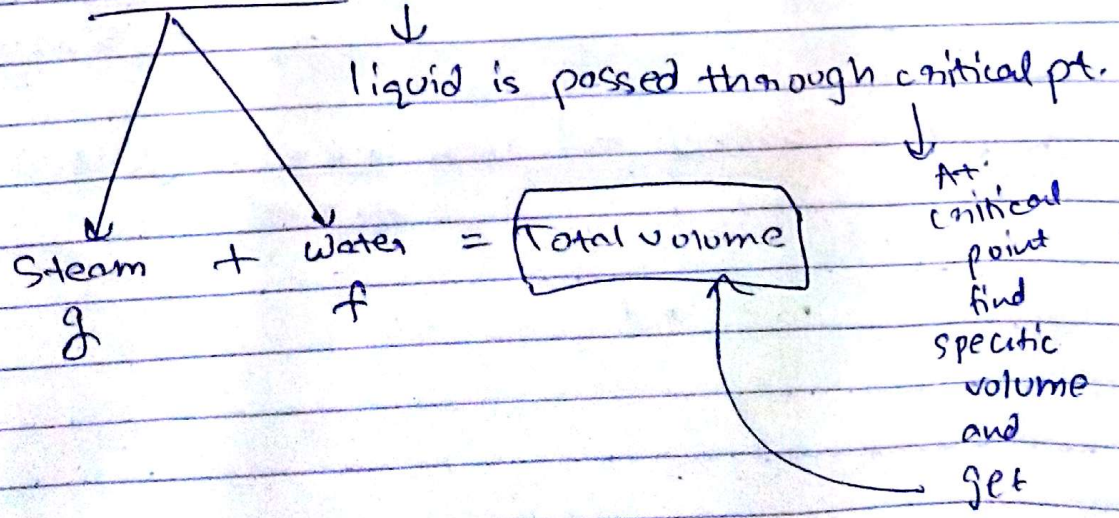 ↓
liquid is passed through critical pt.
↓
Steam + Water = Total volume
g f
At
critical
point
find
specific
volume
and
get